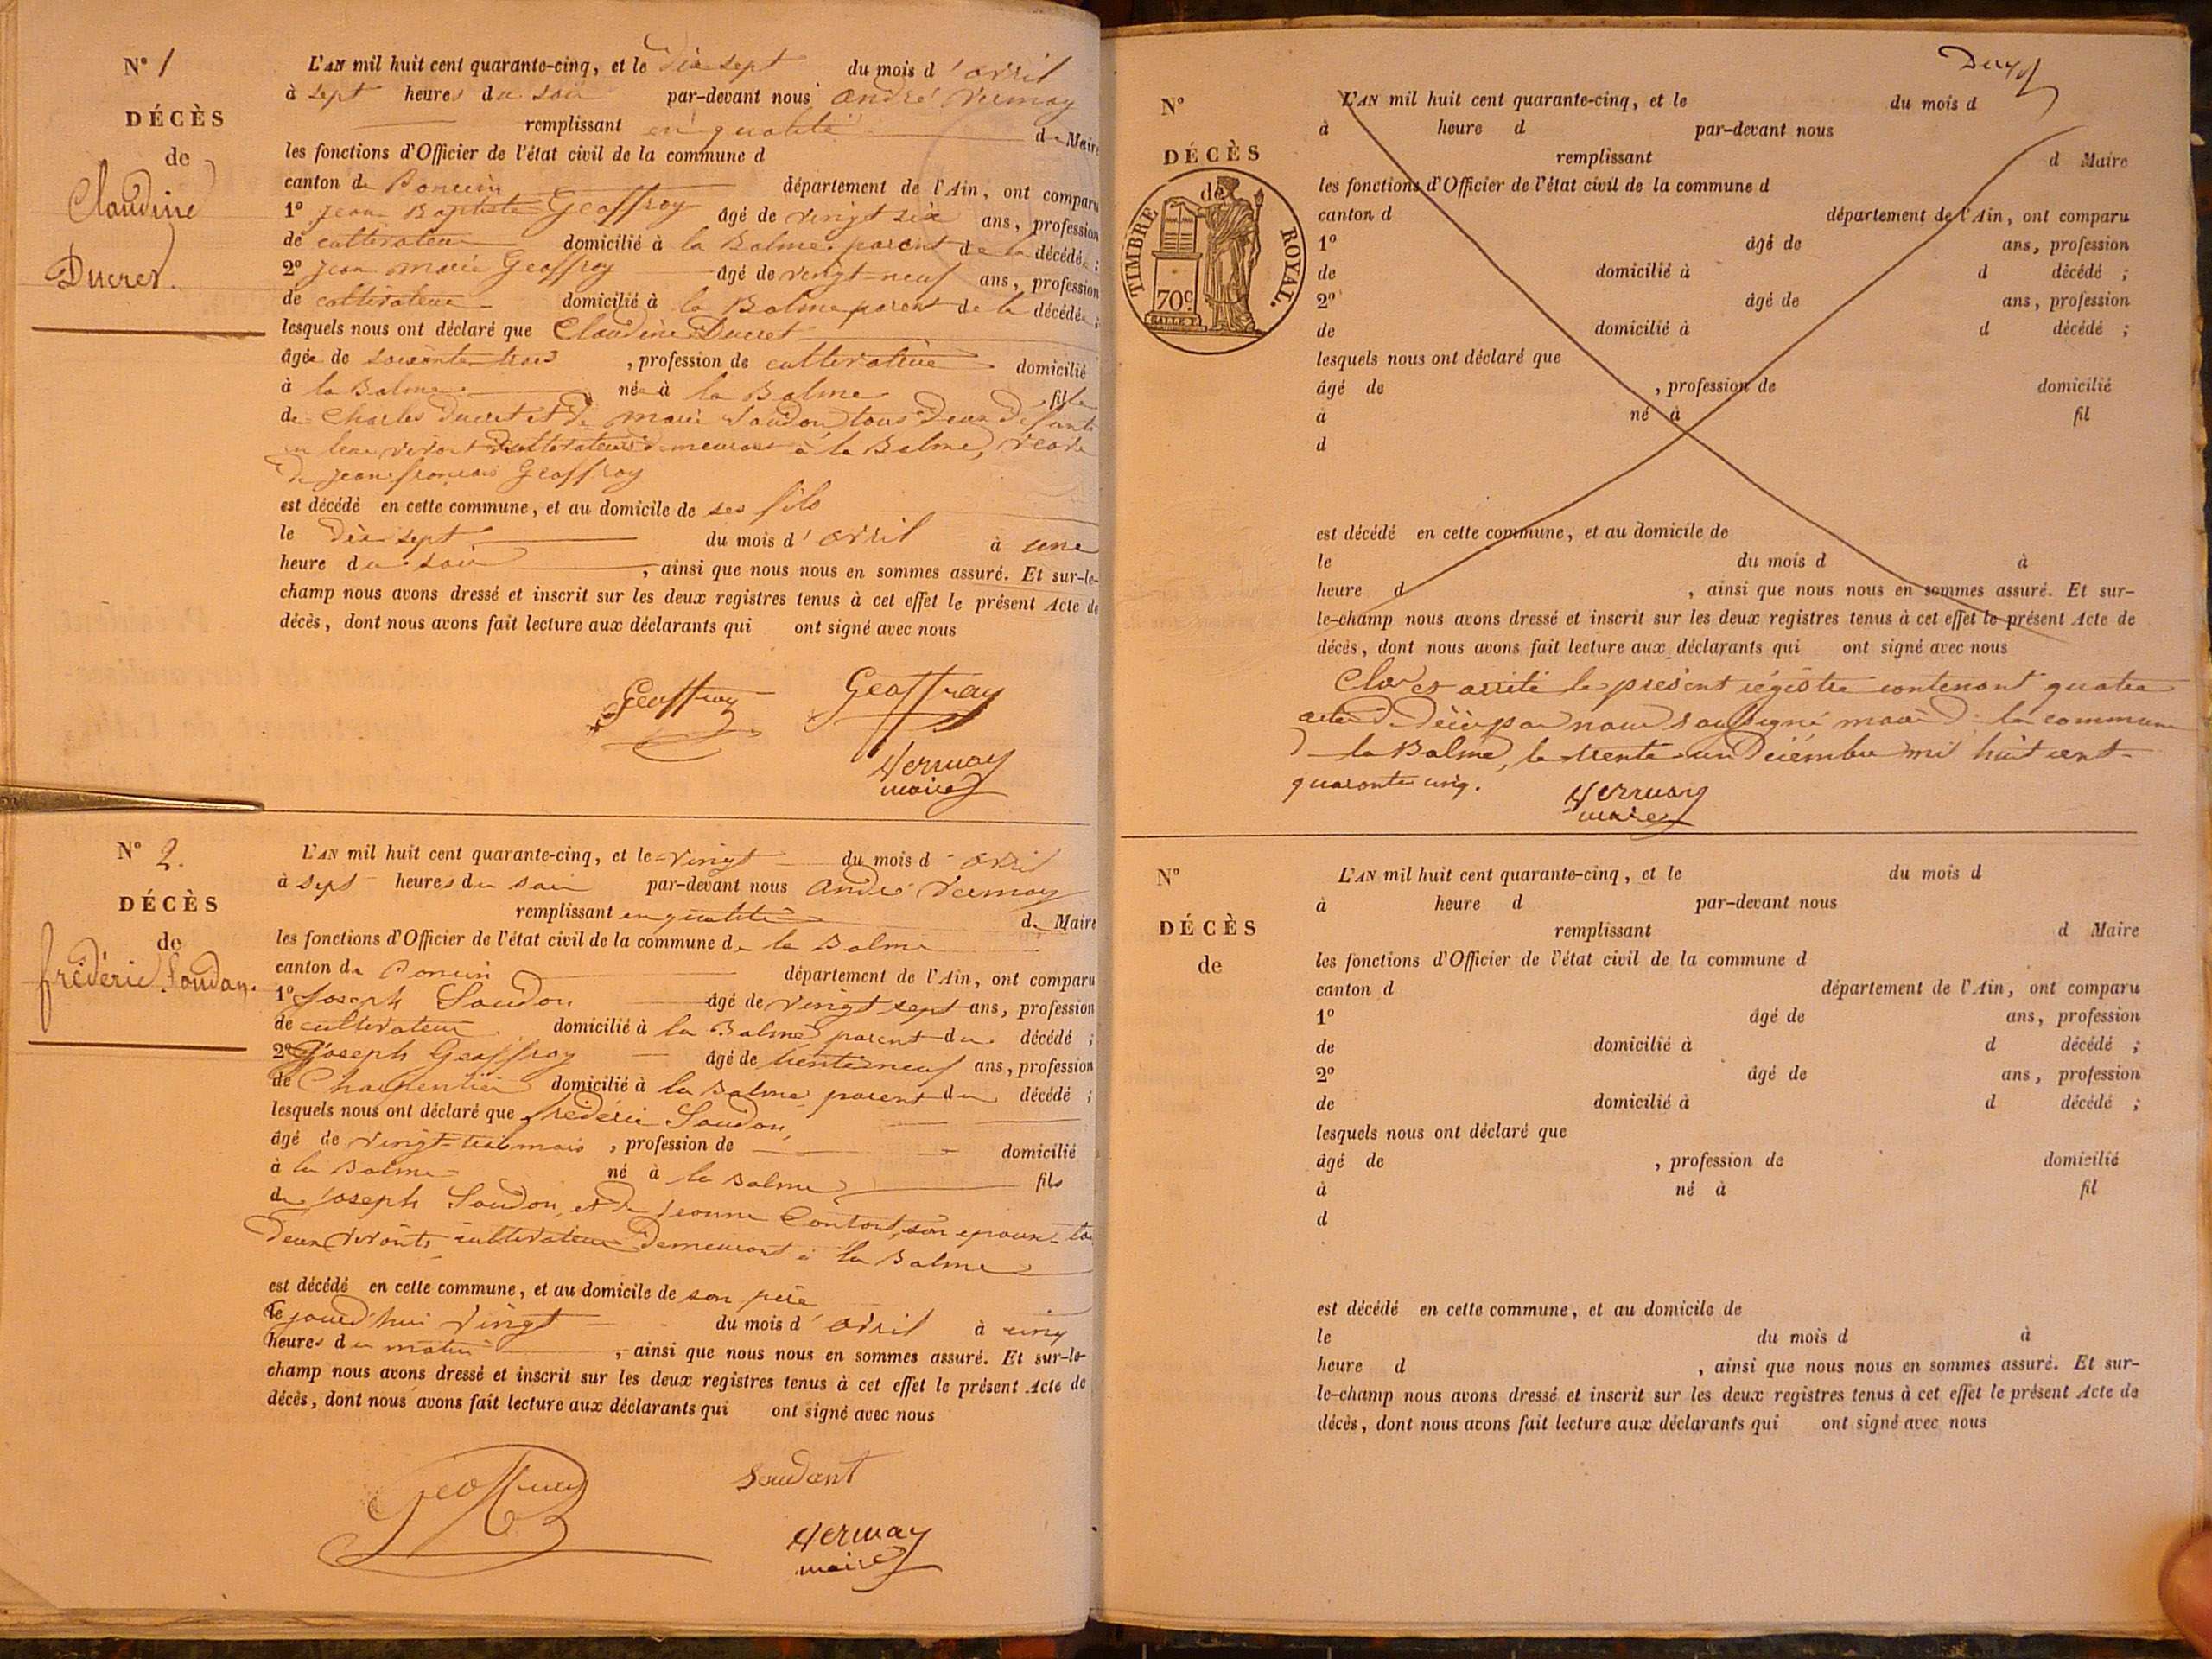 N° 1
DÉCÈS
de
Claudine
Ducret.
L'AN mil huit cent quarante-cinq, et le dix sept du mois d'avril
à sept heures du soir par-devant nous André Vernay
remplissant en qualité de Maire
les fonctions d'Officier de l'état civil de la commune d
canton de Poncin département de l'Ain, ont comparu
1° jean Baptiste Geoffray âgé de vingt six ans, profession
de cultivateur domicilié à la Balme parent de la décédée ;
2° jean marie Geoffray âgé de vingt-neuf ans, profession
de cultivateur domicilié à la Balme parent de la décédée ;
lesquels nous ont déclaré que Claudine Ducret
âgée de soixante trois , profession de cultivatrice domicilié
à la Balme née à la Balme , fille
de Charles Ducret et de marie Soudon tous deux défunts
en leur vivant cultivateurs demeurant à la Balme, veuve
de jean françois Geoffray
est décédé en cette commune, et au domicile de ses fils
le dix sept du mois d'avril à une
heure du soir , ainsi que nous nous en sommes assuré. Et sur-le-
champ nous avons dressé et inscrit sur les deux registres tenus à cet effet le présent Acte de
décès, dont nous avons fait lecture aux déclarants qui ont signé avec nous
Geoffray Geoffray
Vernay
maire
N° 2.
DÉCÈS
de
frédéric Soudon.
L'AN mil huit cent quarante-cinq, et le vingt du mois d'avril
à sept heures du soir par-devant nous André Vernay
remplissant en qualité de Maire
les fonctions d'Officier de l'état civil de la commune de la Balme
canton de Poncin département de l'Ain, ont comparu
1° Joseph Soudon âgé de vingt sept ans, profession
de cultivateur domicilié à la Balme parent du décédé ;
2° Joseph Geoffray âgé de trente neuf ans, profession
de Charpentier domicilié à la Balme parent du décédé ;
lesquels nous ont déclaré que frédéric Soudon,
âgé de vingt-trois mois , profession de domicilié
à la Balme né à la Balme fils
de Joseph Soudon, et de jeanne son epouse
deux vivants cultivateurs demeurant à la Balme
est décédé en cette commune, et au domicile de son père
le jourd'hui vingt du mois d'avril à cinq
heures du matin , ainsi que nous nous en sommes assuré. Et sur-le-
champ nous avons dressé et inscrit sur les deux registres tenus à cet effet le présent Acte de
décès, dont nous avons fait lecture aux déclarants qui ont signé avec nous
Geoffray Soudant
Vernay
maire
N°
DÉCÈS
de
TIMBRE ROYAL.
70c
L'AN mil huit cent quarante-cinq, et le du mois d
à heure d par-devant nous
remplissant d Maire
les fonctions d'Officier de l'état civil de la commune d
canton d département de l'Ain, ont comparu
1° âgé de ans, profession
de domicilié à d décédé ;
2° âgé de ans, profession
de domicilié à d décédé ;
lesquels nous ont déclaré que
âgé de , profession de domicilié
à né à fil
d
est décédé en cette commune, et au domicile de
le du mois d à
heure d , ainsi que nous nous en sommes assuré. Et sur-
le-champ nous avons dressé et inscrit sur les deux registres tenus à cet effet le présent Acte de
décès, dont nous avons fait lecture aux déclarants qui ont signé avec nous
Clos et arrêté le présent régistre contenant quatre
actes de décès par nous soussigné maire de la commune
de la Balme, le trente un Décembre mil huit cent
quarante cinq.
Vernay
maire
N°
DÉCÈS
de
L'AN mil huit cent quarante-cinq, et le du mois d
à heure d par-devant nous
remplissant d Maire
les fonctions d'Officier de l'état civil de la commune d
canton d département de l'Ain, ont comparu
1° âgé de ans, profession
de domicilié à d décédé ;
2° âgé de ans, profession
de domicilié à d décédé ;
lesquels nous ont déclaré que
âgé de , profession de domicilié
à né à fil
d
est décédé en cette commune, et au domicile de
le du mois d à
heure d , ainsi que nous nous en sommes assuré. Et sur-
le-champ nous avons dressé et inscrit sur les deux registres tenus à cet effet le présent Acte de
décès, dont nous avons fait lecture aux déclarants qui ont signé avec nous